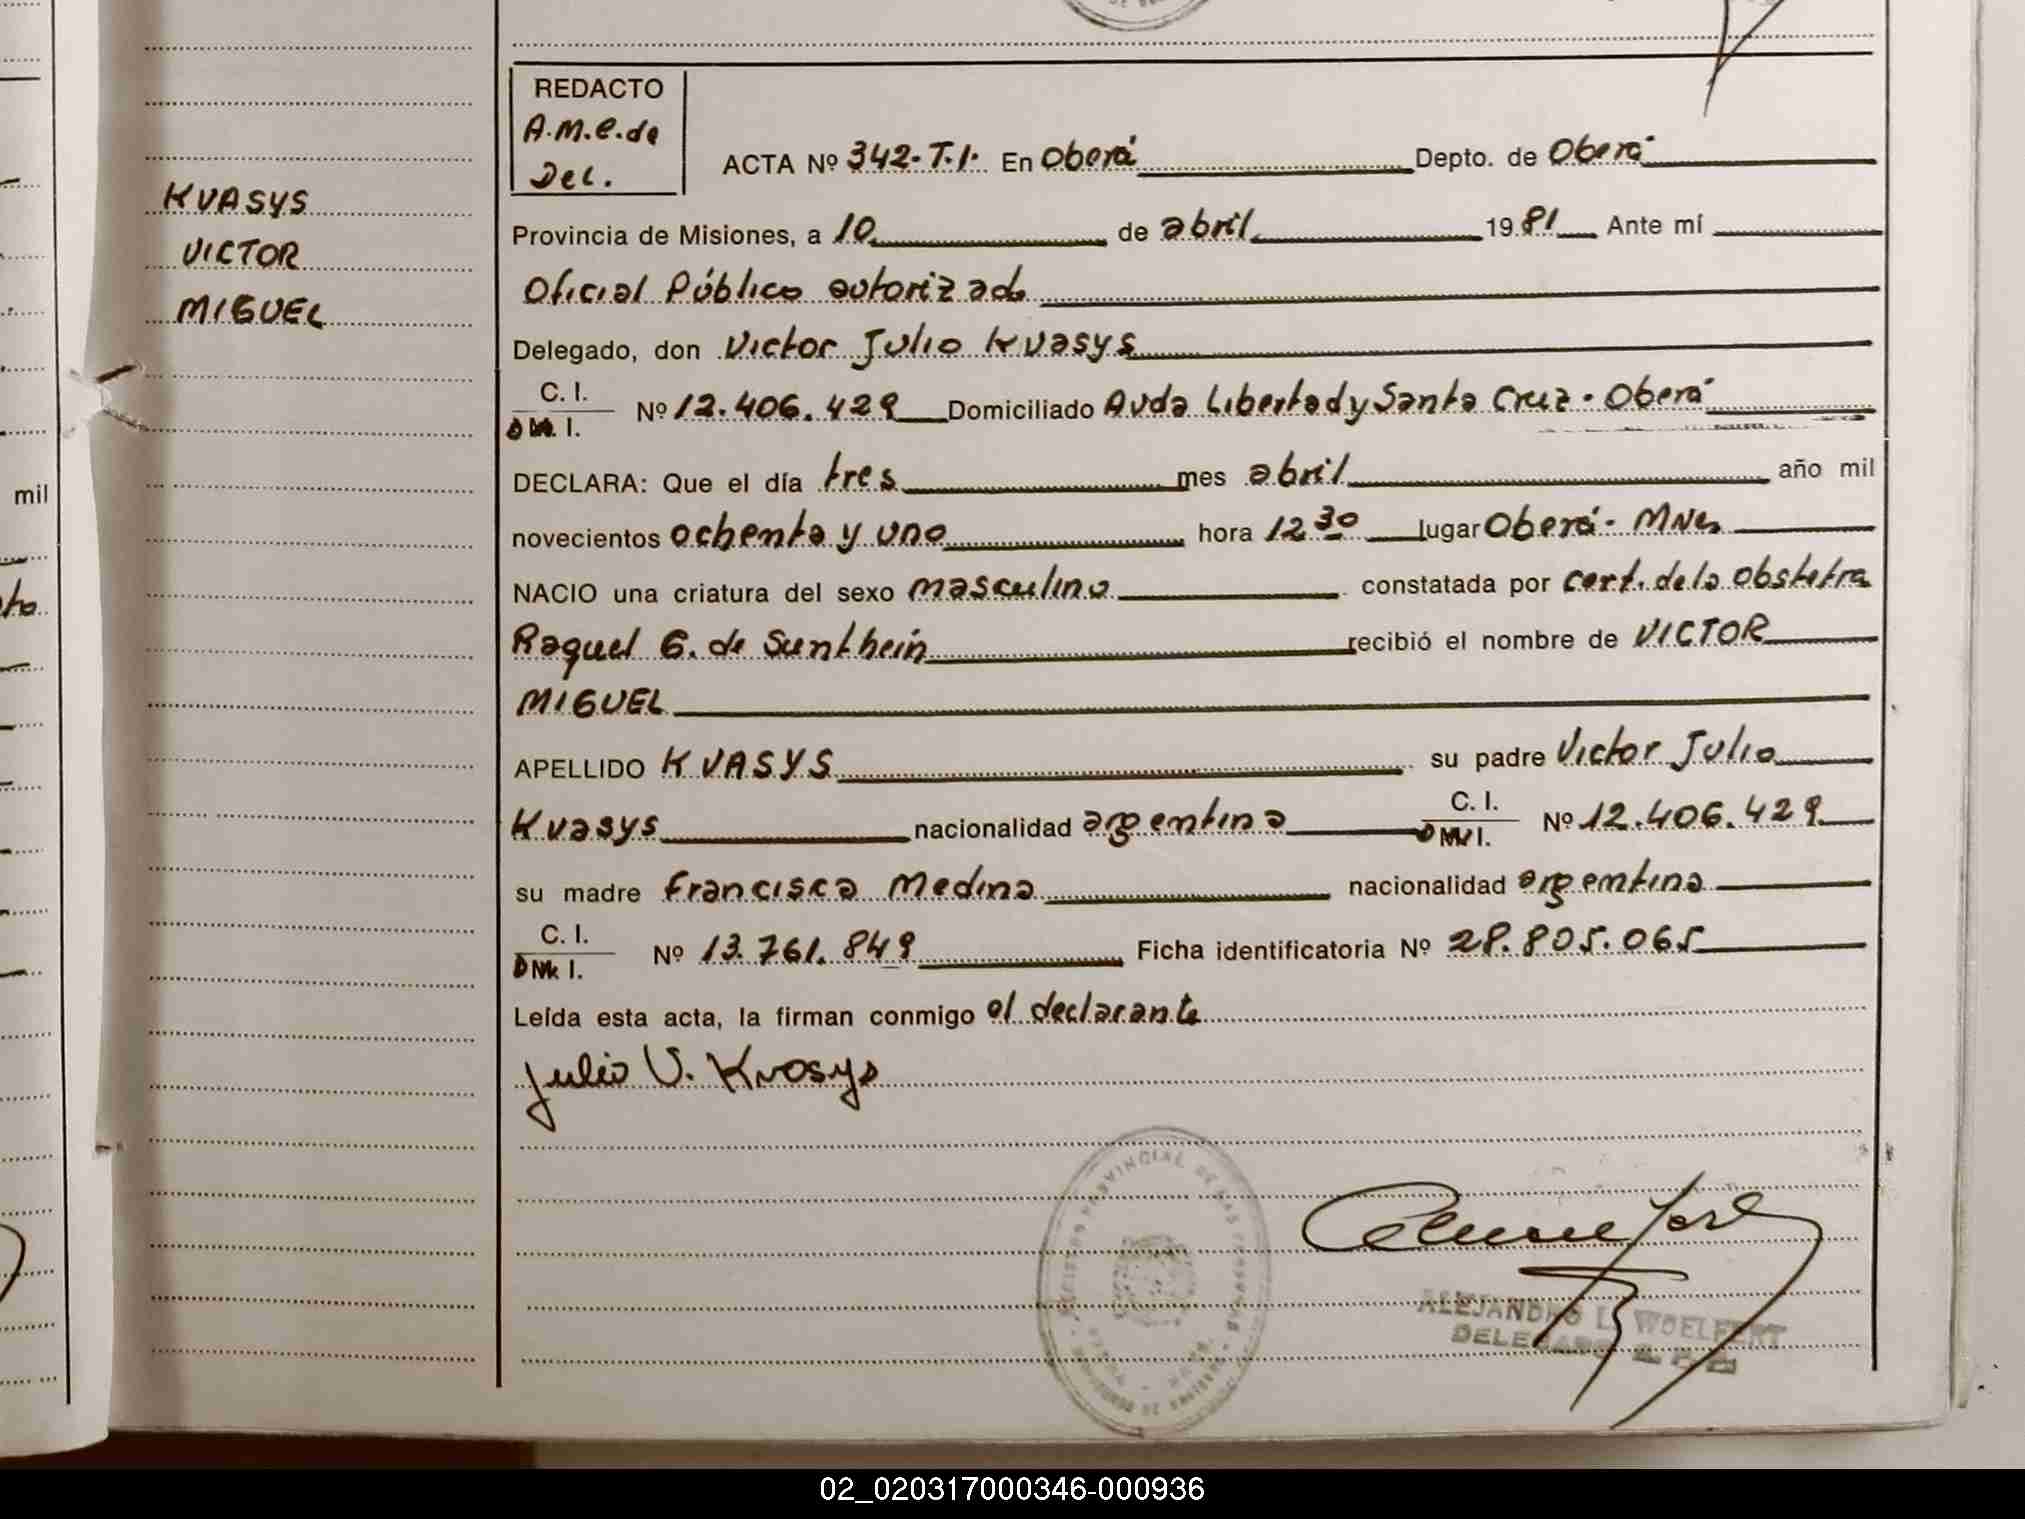 REDACTO
A.M.C.de
Del.
ACTA Nº 342-T.I. En Oberá Depto. de Oberá
KVASYS
VICTOR
MIGUEL
Provincia de Misiones, a 10 de abril 1981 Ante mí
Oficial Público autorizado
Delegado, don Victor Julio Kvasys
C. I.
D M. I. Nº 12.406.429 Domiciliado Avda Libertad y Santa Cruz - Oberá
DECLARA: Que el día tres mes abril año mil
novecientos ochenta y uno hora 12 30 lugar Oberá - Mnes
NACIO una criatura del sexo masculino constatada por cert. de la obstetra
Raquel G. de Sunthein recibió el nombre de VICTOR
MIGUEL
APELLIDO KVASYS su padre Victor Julio
Kvasys nacionalidad argentina C. I. Nº 12.406.429
su madre Francisca Medina nacionalidad argentina
C. I. Nº 13.761.849 Ficha identificatoria Nº 28.805.065
Leída esta acta, la firman conmigo el declarante
Julio V. Kvasys
REGISTRO PROVINCIAL DE LAS PERSONAS
ALEJANDRO L. WOELFERT
DELEGADO
mil
02_020317000346-000936